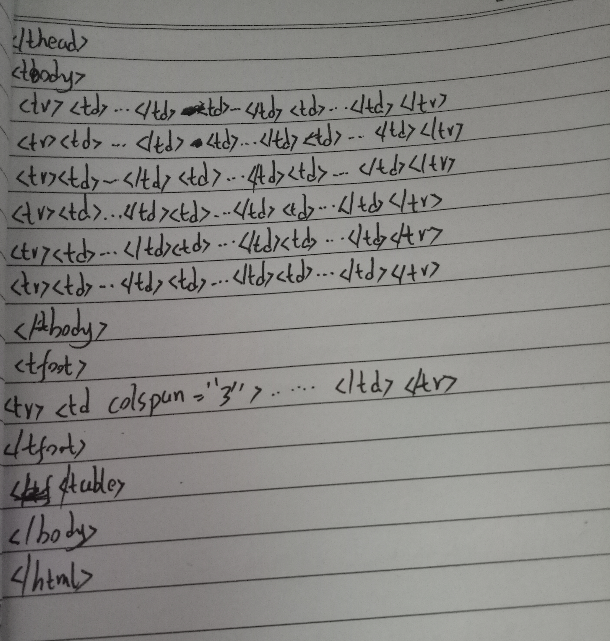 </thead>
<tbody>
<tr><td>...</td><td>-</td><td>...</td></tr>
<tr><td>...</td><td>...</td><td>...</td></tr>
<tr><td>-</td><td>...</td><td>...</td></tr>
<tr><td>...</td><td>...</td><td>...</td></tr>
<tr><td>...</td><td>...</td><td>...</td></tr>
<tr><td>...</td><td>...</td><td>...</td></tr>
</tbody>
<tfoot>
<tr><td colspan="3">......</td></tr>
</tfoot>
</table>
</body>
</html>